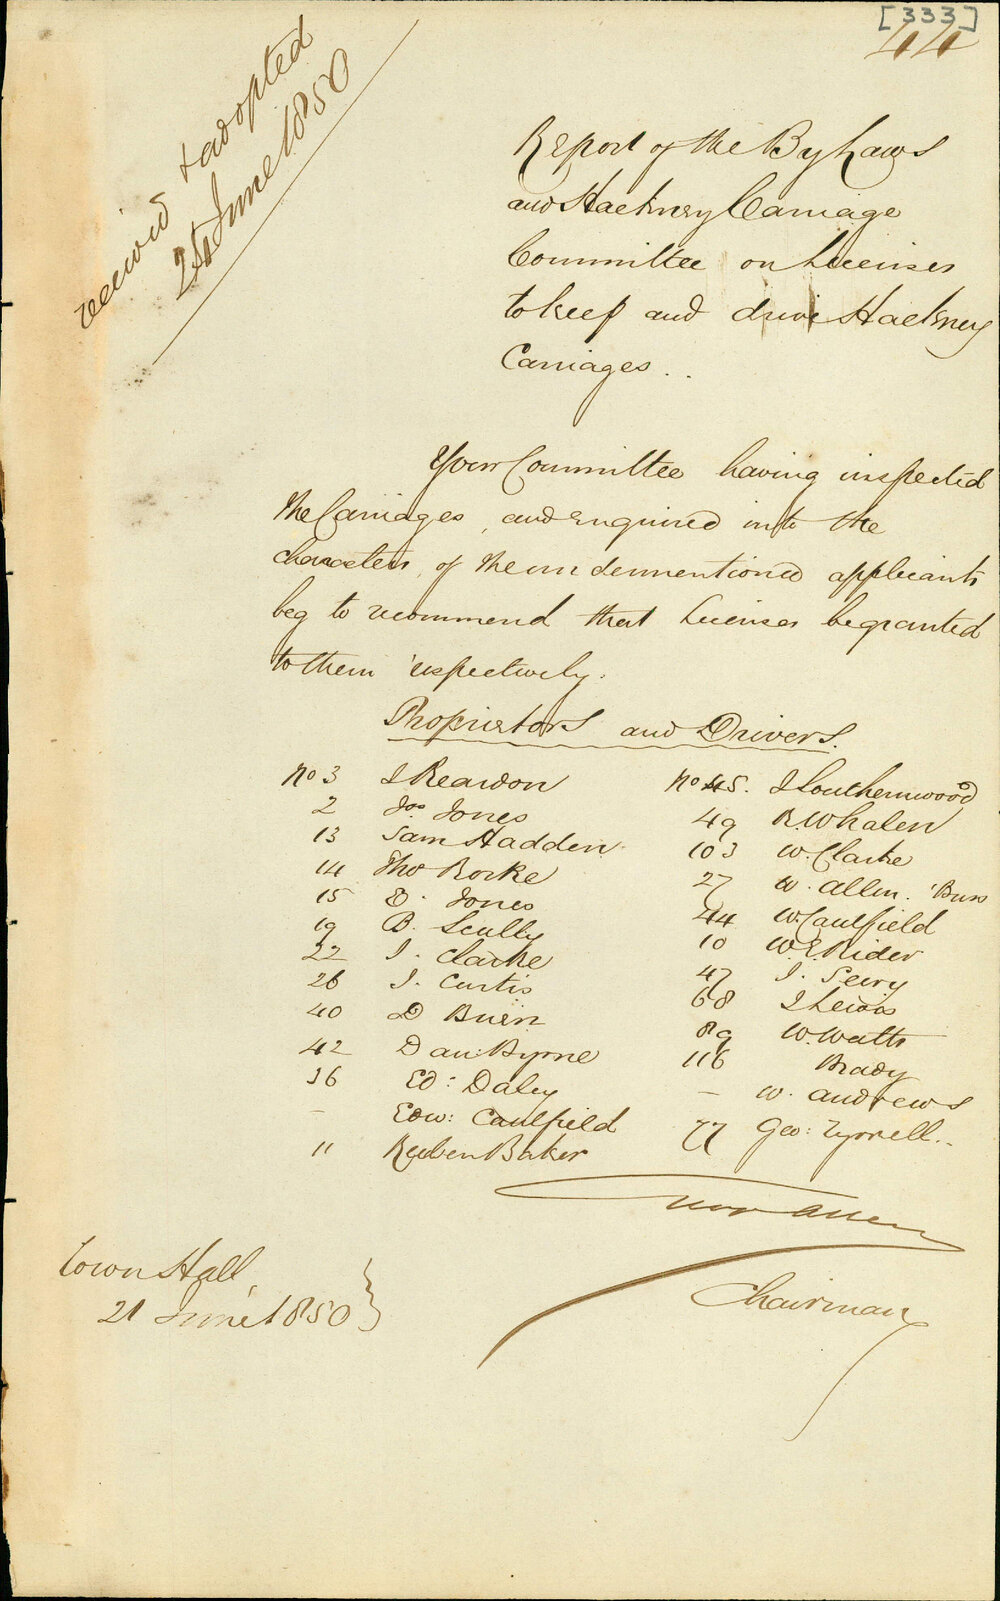 [333]
44
received & adopted
24 June 1850
Report of the By Laws
and Hackney Carriage
Committee on Licenses
to keep and drive Hackney
Carriages..
Your Committee having inspected
the Carriages, and enquired into the
characters, of the undermentioned applicants
beg to recommend that Licenses be granted
to them respectively.
Proprietors and Drivers.
No 3 J Reardon
2 Jos Jones
13 Sam Hadden
14 Tho Rorke
15 D. Jones
19 B. Scully
22 J. Clarke
26 J. Curtis
40 D Buen
42 Dan: Byrne
36 Ed: Daley
– Edw: Caulfield
11 Reuben Baker
No 45. J Southernwood
49 R. Whalen
103 W. Clarke
27 W. Allen. 'Buss
44 W. Caulfield
10 W. E. Rider
47 J. Seery
68 J Lewis
89 W. Watts
116 Brady
– W. Andrews
77 Geo: Tyrrell..
Allen
Chairman
Town Hall,
21 June 1850 }